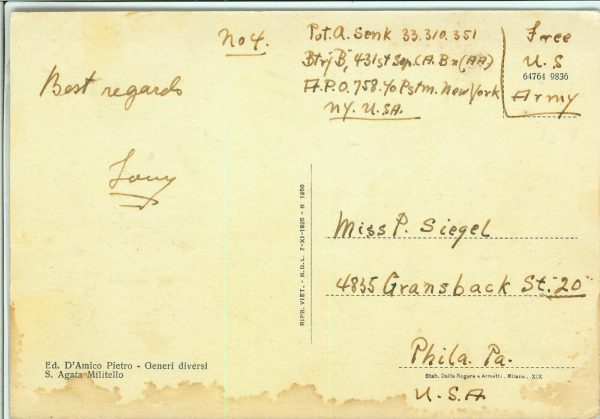 No 4.
Pvt. A. Senk 33.310.351
Btry "B", 431st Sep. C.A. Bn (AA)
A.P.O. 758. c/o Pstm. New York
N.Y. U.S.A.
Free
U.S
64764 9836
Army
Best regards
Tony
RIPR. VIET. - R.D.L. 7-XI-1925 - N 1950
Miss P. Siegel
4835 Gransback St. "20"
Phila. Pa.
U.S.A
Ed. D'Amico Pietro - Generi diversi
S. Agata Militello
Stab. Dalle Nogare e Armetti - Milano - XIX